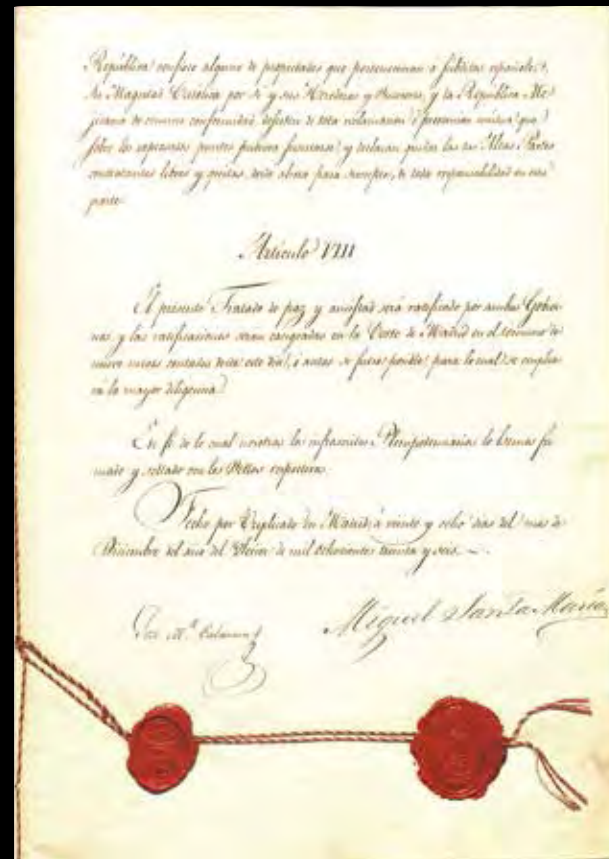 República confisco alguno de propiedades que perteneciesen a súbditos españoles,
Su Magestad Católica por sí y sus Herederos y Sucesores, y la República Me-
jicana de comun conformidad desisten de toda reclamacion ó pretension mútua que
sobre los expresados puntos pudiera suscitarse, y declaran quedar las dos Altas Partes
contratantes libres y quitas, desde ahora para siempre, de toda responsabilidad en esta
parte.
Artículo VIII
El presente Tratado de paz y amistad será ratificado por ambos Gobier-
nos, y las ratificaciones seran cangeadas en la Corte de Madrid en el término de
nueve meses contados desde este dia, ó antes si fuese posible, para lo cual se emplea-
rá la mayor diligencia.
En fe de lo cual nosotros los infrascritos Plenipotenciarios lo hemos fir-
mado y sellado con los Sellos respectivos.
Fecho por Triplicado en Madrid, á veinte y ocho dias del mes de
Diciembre del año del Señor de mil ochocientos treinta y seis.
José M.ª Calatrava Miguel Santa María